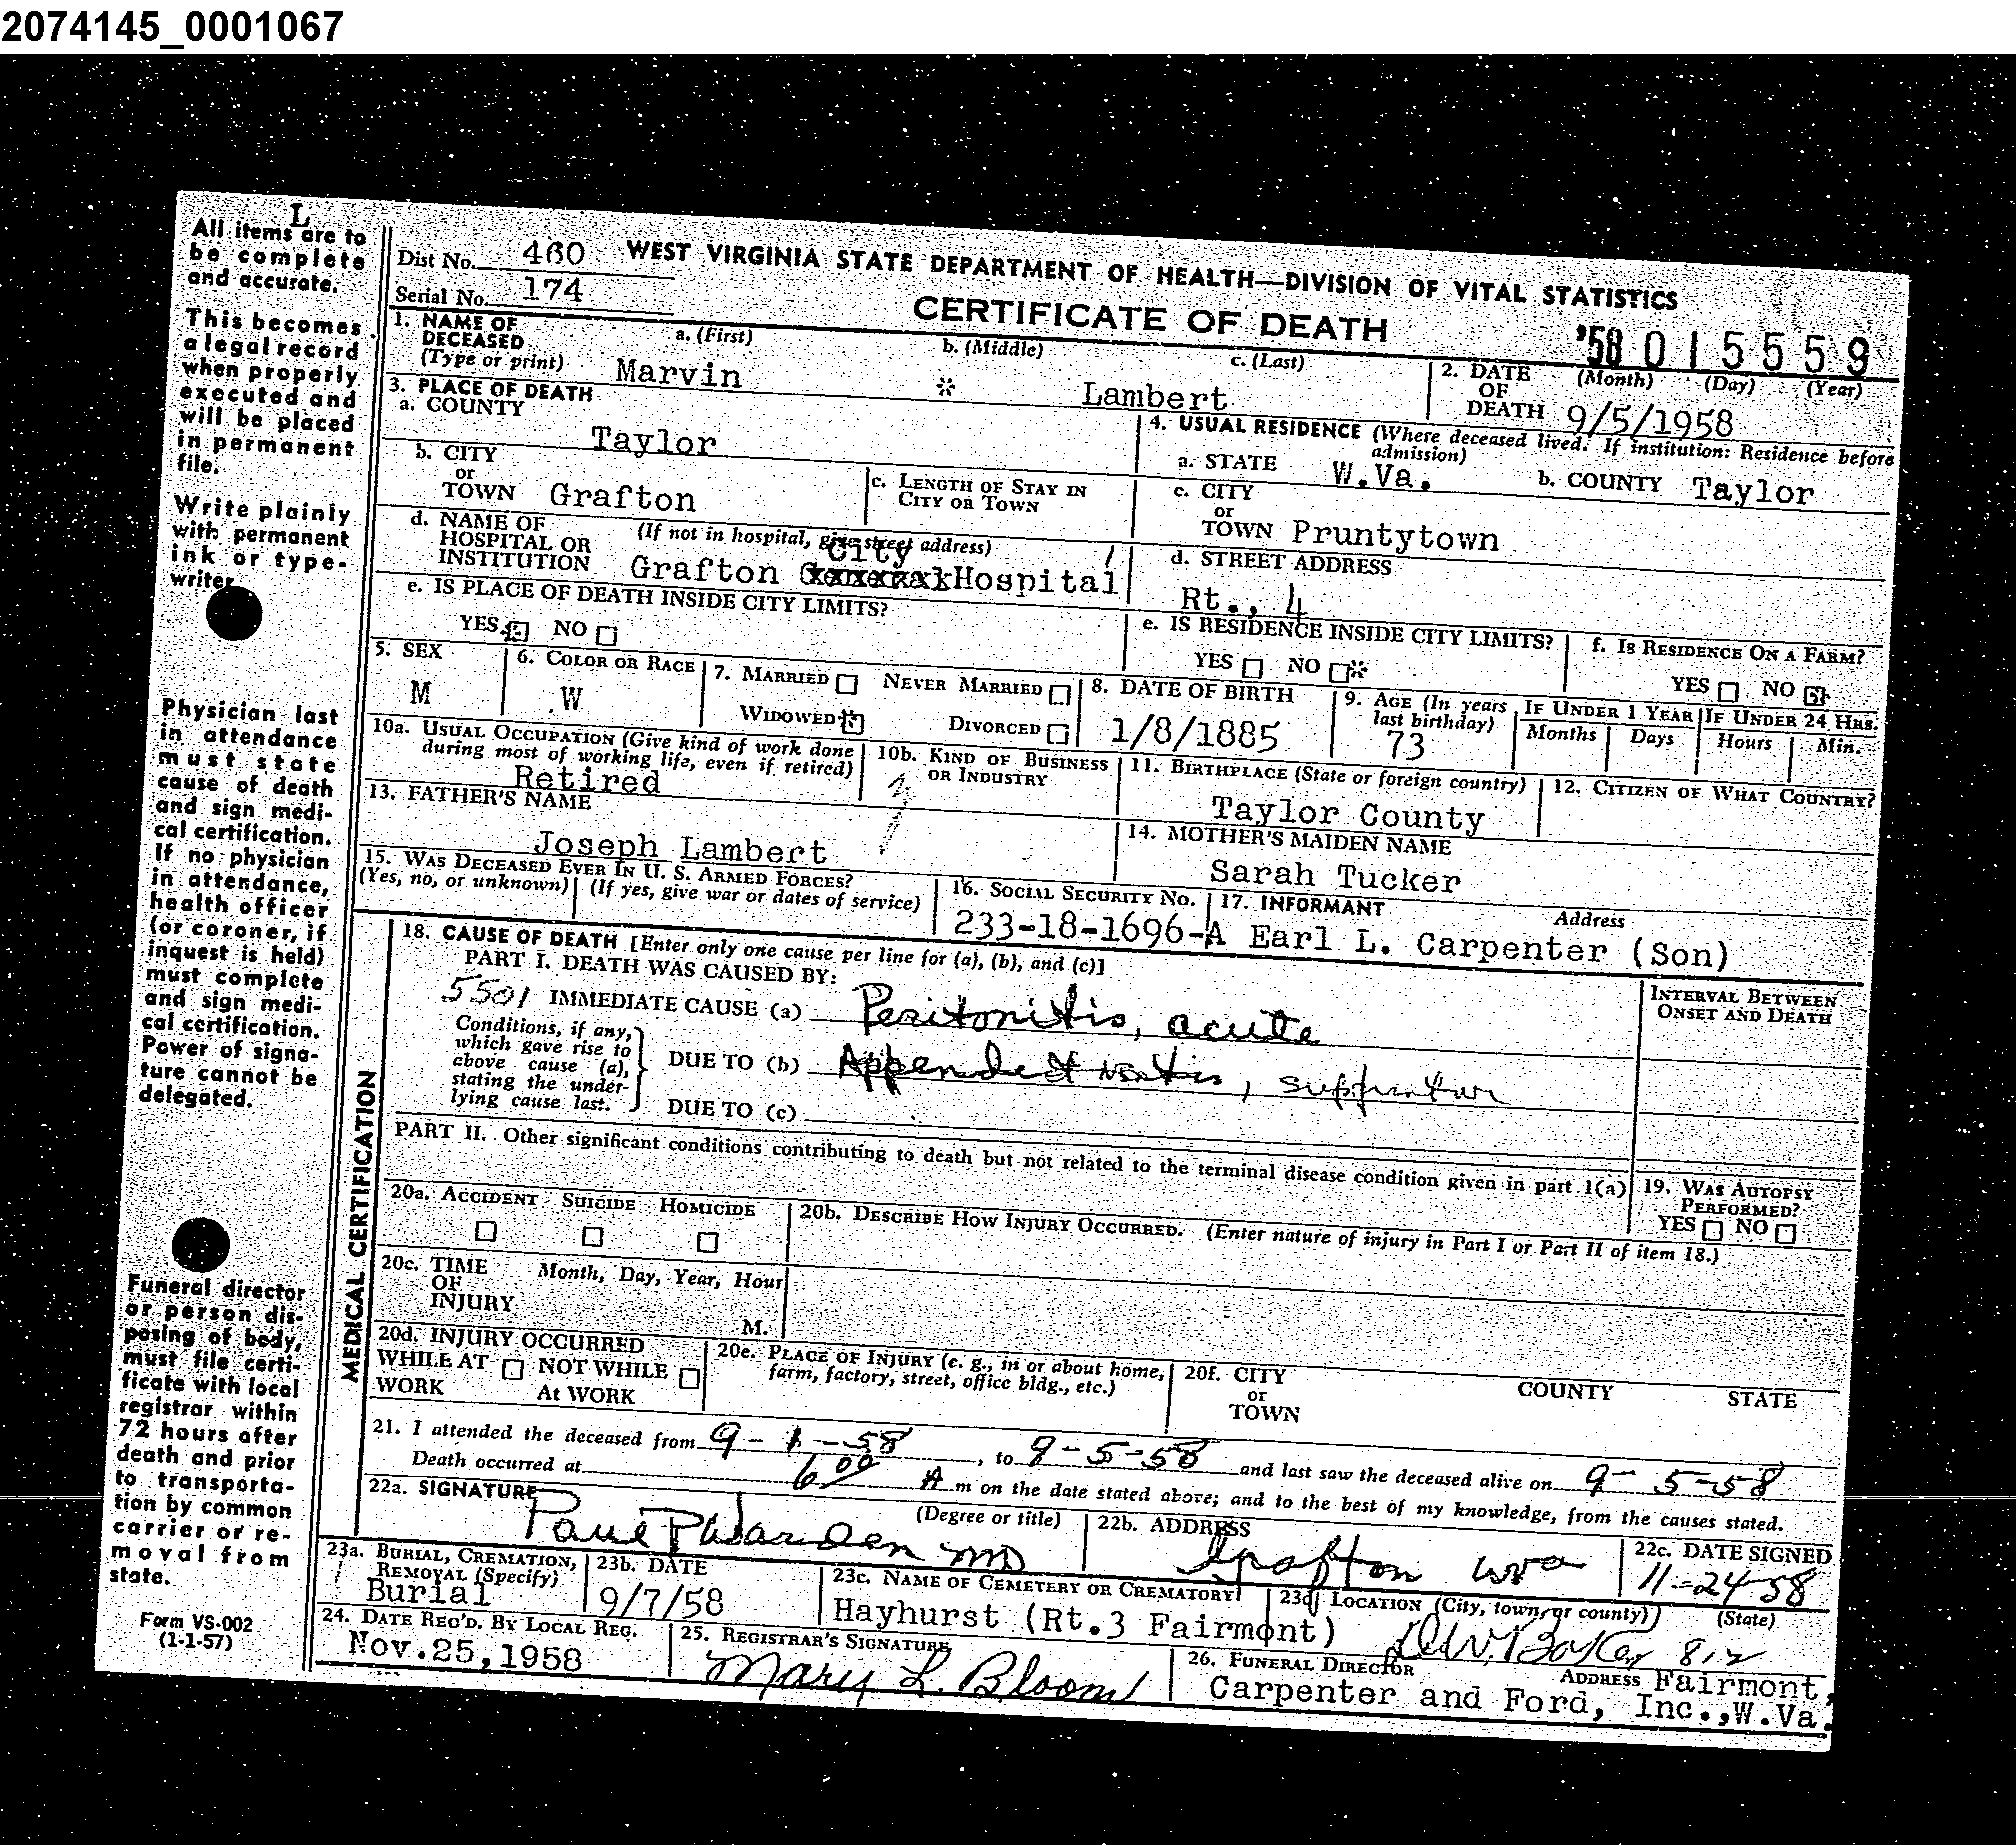 2074145_0001067
L
All items are to
be complete
and accurate.
This becomes
a legal record
when properly
executed and
will be placed
in permanent
file.
Write plainly
with permanent
ink or type-
writer
Physician last
in attendance
must state
cause of death
and sign medi-
cal certification.
If no physician
in attendance,
health officer
(or coroner, if
inquest is held)
must complete
and sign medi-
cal certification.
Power of signa-
ture cannot be
delegated.
Funeral director
or person dis-
posing of body,
must file certi-
ficate with local
registrar within
72 hours after
death and prior
to transporta-
tion by common
carrier or re-
moval from
state.
Form VS-002
(1-1-57)
Dist No. 460 WEST VIRGINIA STATE DEPARTMENT OF HEALTH—DIVISION OF VITAL STATISTICS
Serial No. 174
CERTIFICATE OF DEATH
'58 015559
1. NAME OF DECEASED (Type or print) a. (First) b. (Middle) c. (Last)
Marvin * Lambert
2. DATE OF DEATH (Month) (Day) (Year)
9/5/1958
3. PLACE OF DEATH
a. COUNTY
Taylor
4. USUAL RESIDENCE (Where deceased lived. If institution: Residence before admission)
a. STATE W.Va. b. COUNTY Taylor
b. CITY or TOWN Grafton
c. LENGTH OF STAY IN CITY OR TOWN
c. CITY or TOWN Pruntytown
d. NAME OF HOSPITAL OR INSTITUTION (If not in hospital, give street address)
City
Grafton Hospital
d. STREET ADDRESS
Rt., 4
e. IS PLACE OF DEATH INSIDE CITY LIMITS?
YES NO
e. IS RESIDENCE INSIDE CITY LIMITS?
YES NO *
f. IS RESIDENCE ON A FARM?
YES NO
5. SEX
M
6. COLOR OR RACE
W
7. MARRIED NEVER MARRIED
WIDOWED DIVORCED
8. DATE OF BIRTH
1/8/1885
9. AGE (In years last birthday)
73
IF UNDER 1 YEAR
Months Days
IF UNDER 24 HRS.
Hours Min.
10a. USUAL OCCUPATION (Give kind of work done during most of working life, even if retired)
Retired
10b. KIND OF BUSINESS OR INDUSTRY
11. BIRTHPLACE (State or foreign country)
Taylor County
12. CITIZEN OF WHAT COUNTRY?
13. FATHER'S NAME
Joseph Lambert
14. MOTHER'S MAIDEN NAME
Sarah Tucker
15. WAS DECEASED EVER IN U. S. ARMED FORCES?
(Yes, no, or unknown) (If yes, give war or dates of service)
16. SOCIAL SECURITY NO.
233-18-1696-A
17. INFORMANT Address
Earl L. Carpenter (Son)
MEDICAL CERTIFICATION
18. CAUSE OF DEATH [Enter only one cause per line for (a), (b), and (c)]
PART I. DEATH WAS CAUSED BY:
INTERVAL BETWEEN ONSET AND DEATH
5501 IMMEDIATE CAUSE (a) Peritonitis, acute
Conditions, if any, which gave rise to above cause (a), stating the underlying cause last.
DUE TO (b)
DUE TO (c)
PART II. Other significant conditions contributing to death but not related to the terminal disease condition given in part 1(a)
19. WAS AUTOPSY PERFORMED?
YES NO
20a. ACCIDENT SUICIDE HOMICIDE
20b. DESCRIBE HOW INJURY OCCURRED. (Enter nature of injury in Part I or Part II of item 18.)
20c. TIME OF INJURY Month, Day, Year, Hour
M.
20d. INJURY OCCURRED
WHILE AT WORK NOT WHILE At WORK
20e. PLACE OF INJURY (e. g., in or about home, farm, factory, street, office bldg., etc.)
20f. CITY or TOWN COUNTY STATE
21. I attended the deceased from 9-1-58, to 9-5-58 and last saw the deceased alive on 9-5-58
Death occurred at 6 00 A m on the date stated above; and to the best of my knowledge, from the causes stated.
22a. SIGNATURE (Degree or title)
Paul P Warden MD
22b. ADDRESS
Grafton W Va
22c. DATE SIGNED
11-24-58
23a. BURIAL, CREMATION, REMOVAL (Specify)
Burial
23b. DATE
9/7/58
23c. NAME OF CEMETERY OR CREMATORY
Hayhurst (Rt.3 Fairmont)
23d. LOCATION (City, town, or county) (State)
24. DATE REC'D. BY LOCAL REG.
Nov.25,1958
25. REGISTRAR'S SIGNATURE
Mary L. Bloom
26. FUNERAL DIRECTOR ADDRESS
Carpenter and Ford, Inc., Fairmont, W.Va.